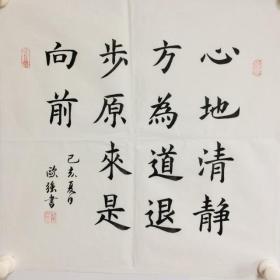 心地清静
方為道退
步原來是
向前
己亥夏日
歐强書